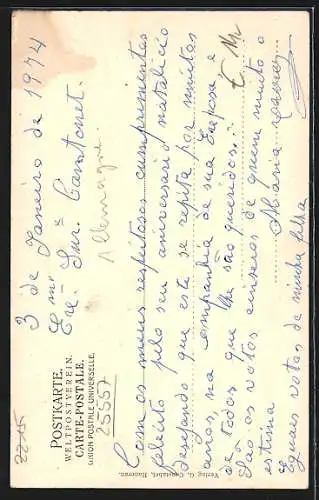 3 de Janeiro de 1914
Exmº Snr. Cantonet.
Allemagne
Com os meus respeitosos cumprimentos
felicito pelo seu aniversario natalicio
desejando que este se repita por muitos
anos, na companhia de sua Esposa e
de todos que lhe são queridos.
São os votos sinceros de quem muito o
estima
Maria
Eguaes votos de minha filha
POSTKARTE.
WELTPOSTVEREIN.
CARTE-POSTALE.
UNION POSTALE UNIVERSELLE.
25557
Verlag G.